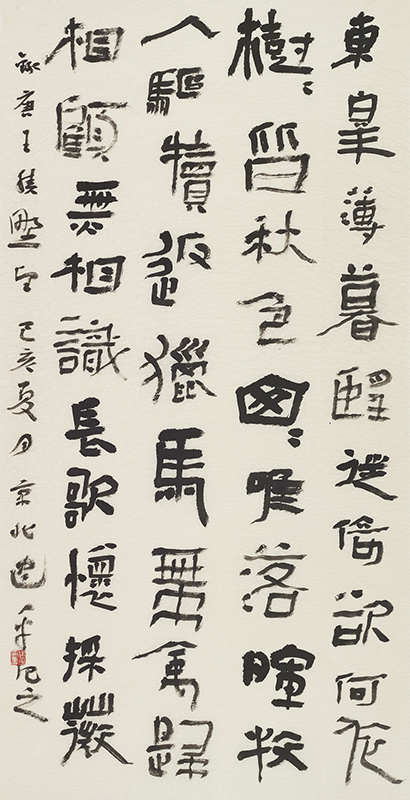 東皋薄暮望徙倚欲何依
樹〻皆秋色山〻唯落暉牧
人驅犢返獵馬帶禽歸
相顧無相識長歌懷採薇
錄唐王績野望己亥夏月京北边平記之